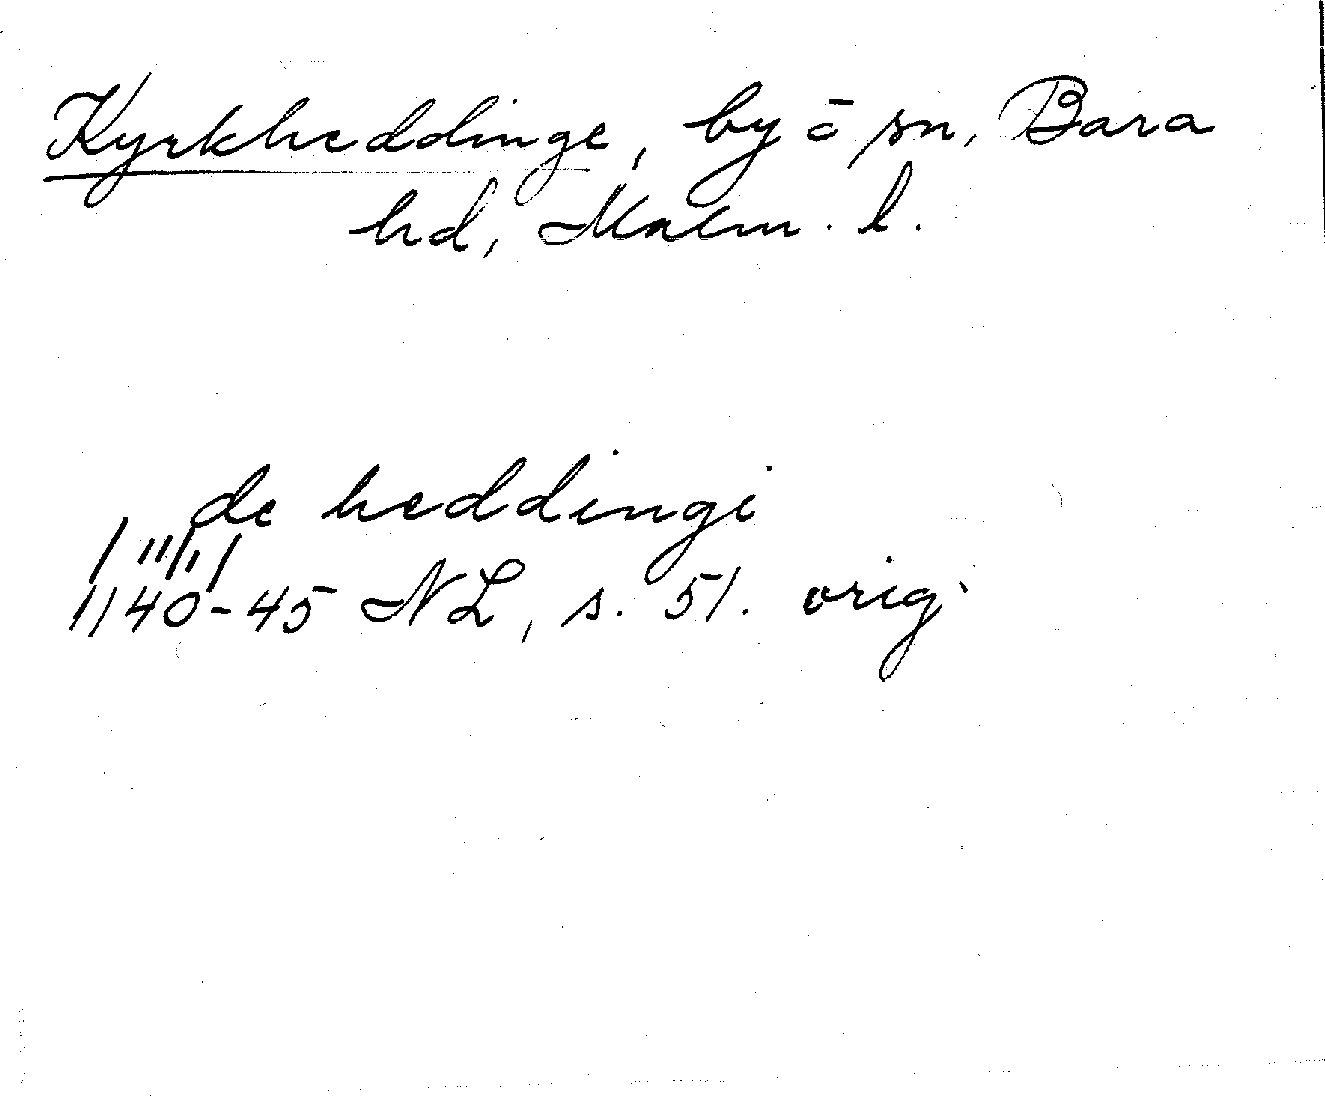 Kyrkheddinge, by o sn, Bara
hd, Malm. l.
de heddingi
1140-45 NL, s. 51. orig.